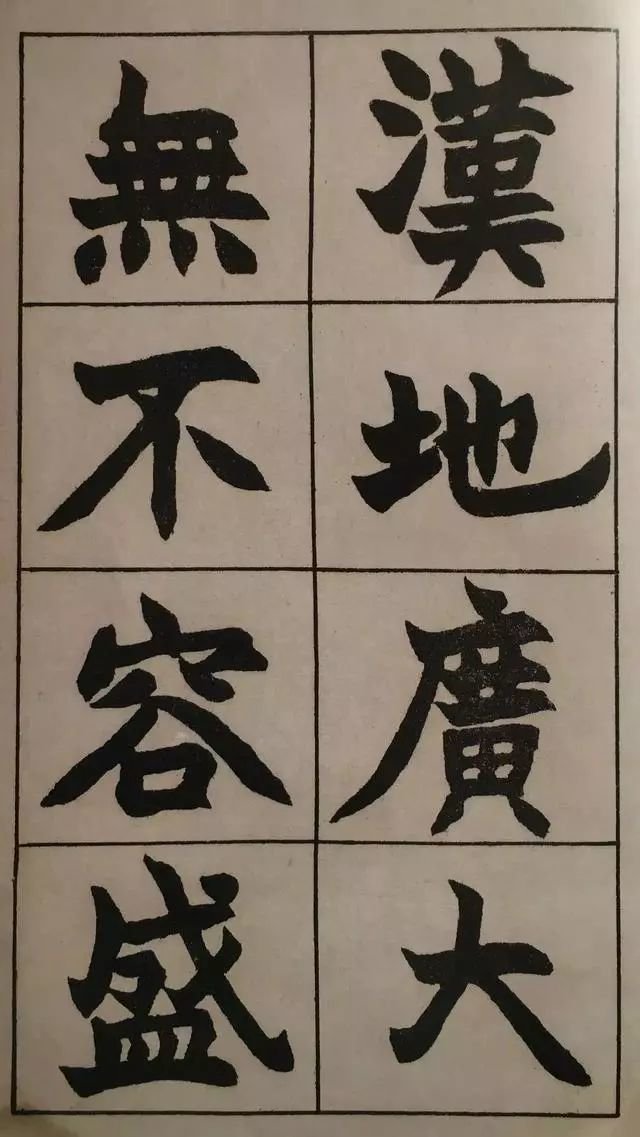 漢地廣大
無不容盛